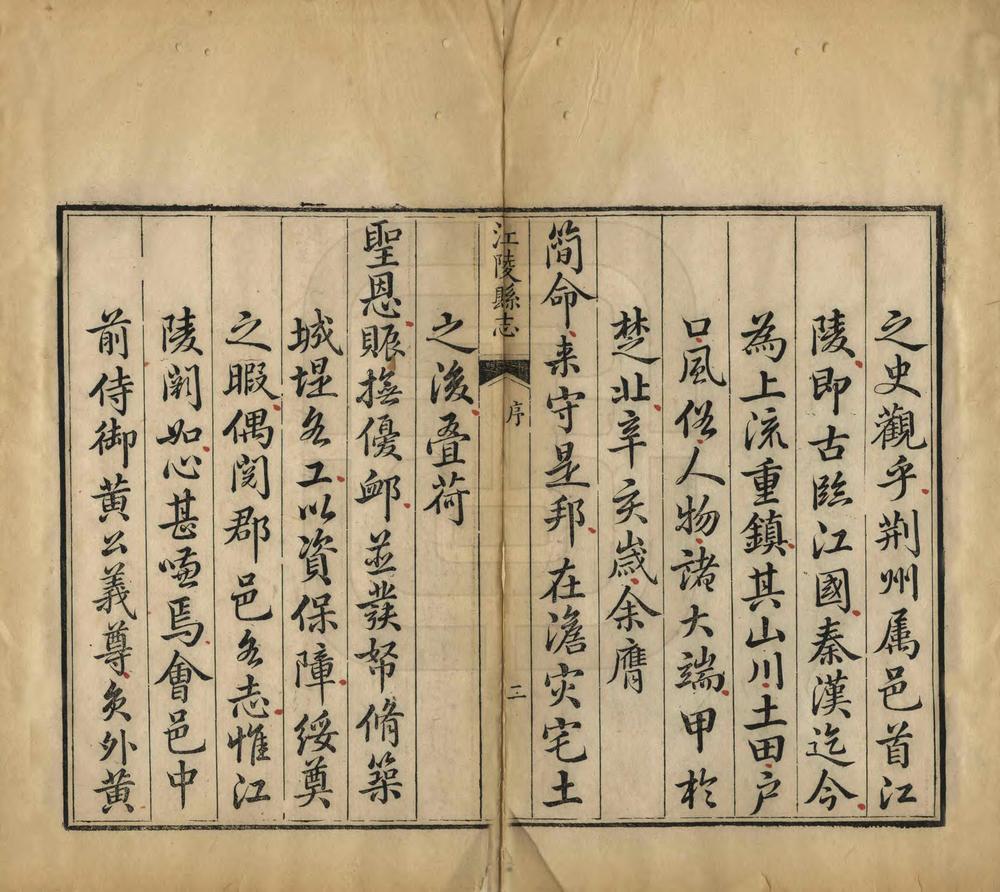 之史觀乎荆州属邑首江
陵即古臨江國秦漢迄今
為上流重鎮其山川土田户
口風俗人物諸大端甲於
楚北辛亥歲余膺
簡命来守是邦在澹灾宅土
江陵縣志
序
三
之後叠荷
聖恩賑撫優卹並發帑脩築
城堤各工以資保障綏奠
之暇偶閱郡邑各志惟江
陵闕如心甚嗛焉會邑中
前侍御黄公義尊員外黄